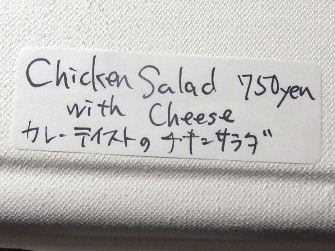 Chicken Salad 750yen
with Cheese
カレーテイストのチキンサラダ